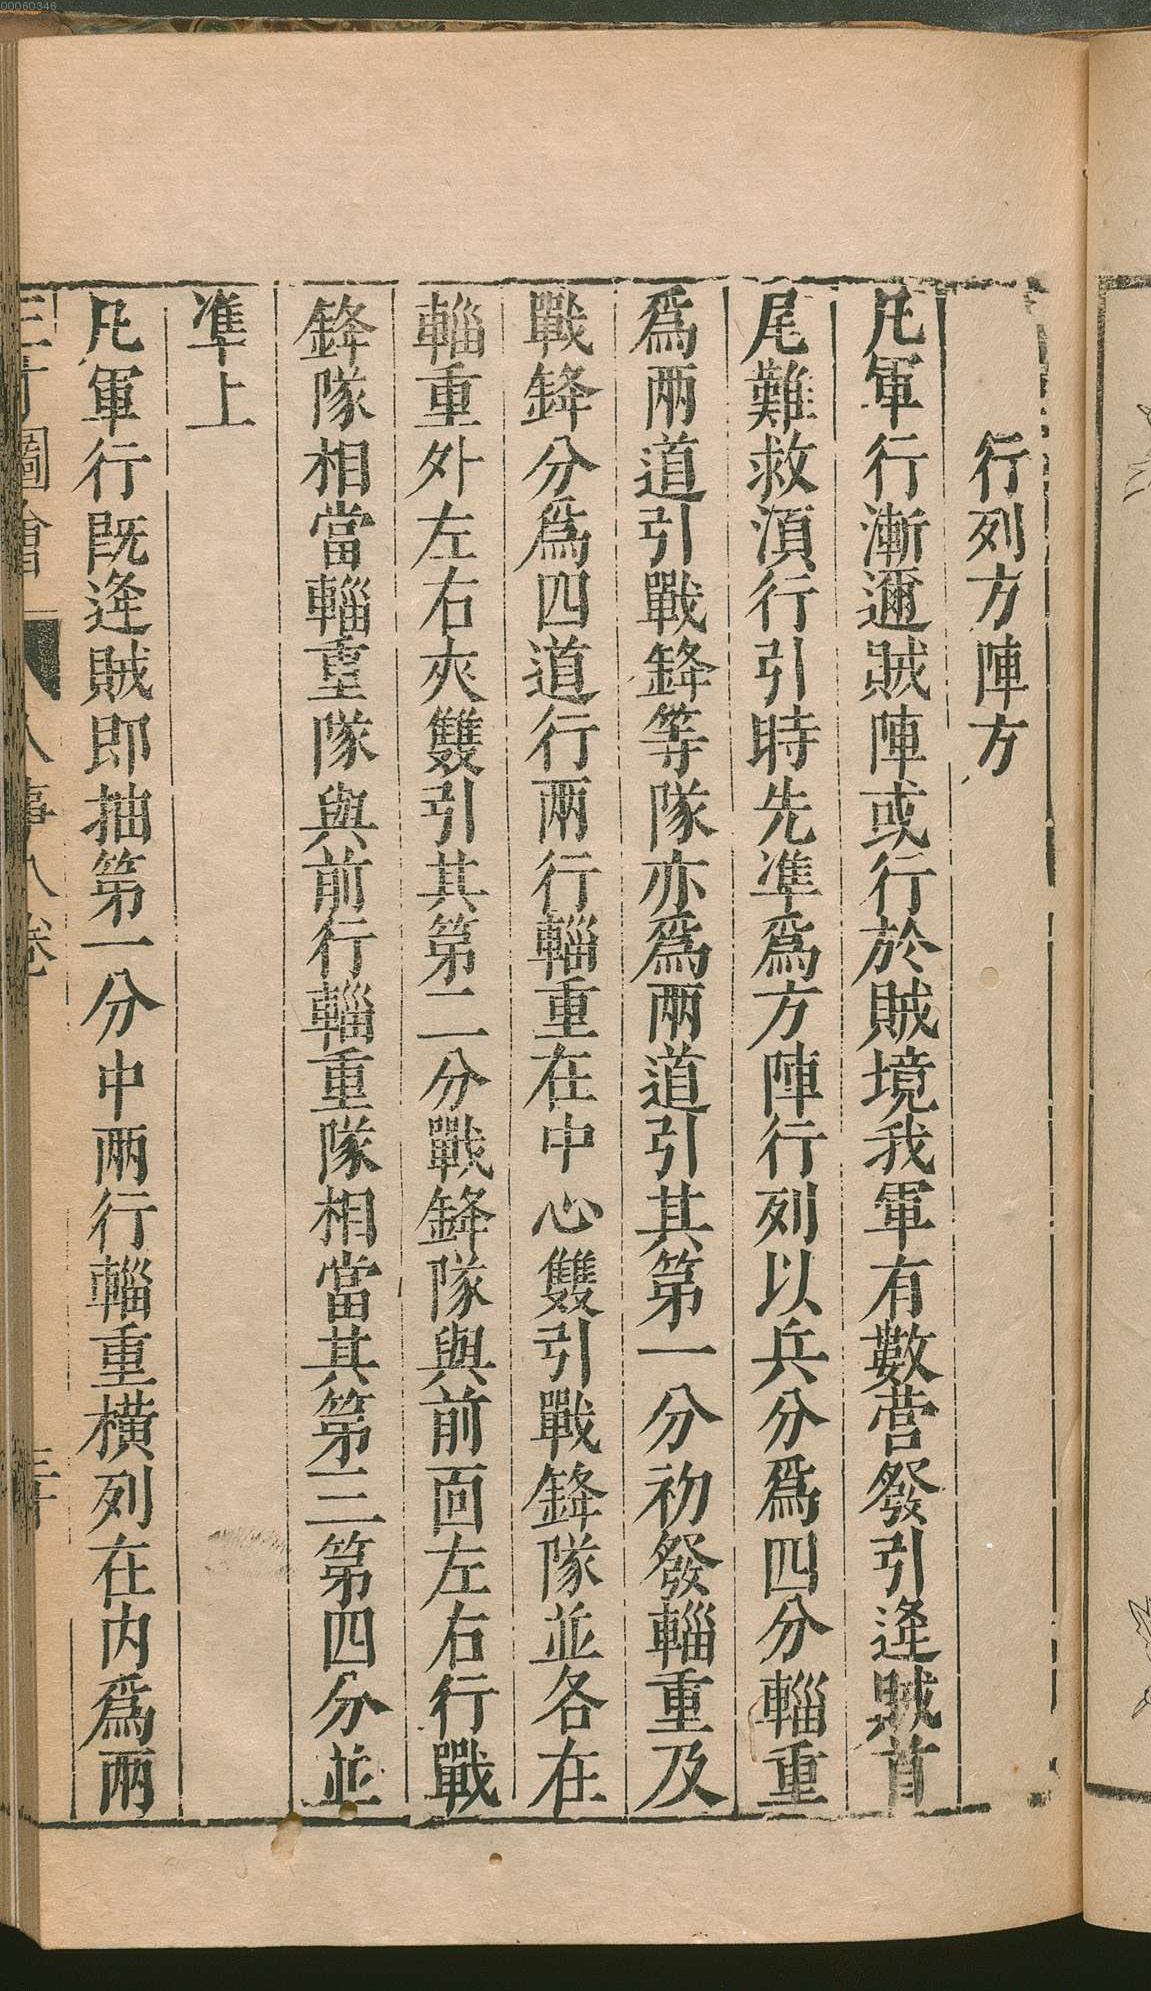 行列方陣方
凡軍行漸邇賊陣或行於賊境我軍有數營發引逢賊首
尾難救湏行引時先凖爲方陣行列以兵分爲四分輜重
爲兩道引戰鋒等隊亦爲兩道引其第一分初發輜重及
戰鋒分爲四道行兩行輜重在中心雙引戰鋒隊並各在
輜重外左右夾雙引其第二分戰鋒隊與前面左右行戰
鋒隊相當輜重隊與前行輜重隊相當其第三第四分並
凖上
凡軍行既逢賊即抽第一分中兩行輜重橫列在内爲兩
三才圖會
人事八卷
00060346